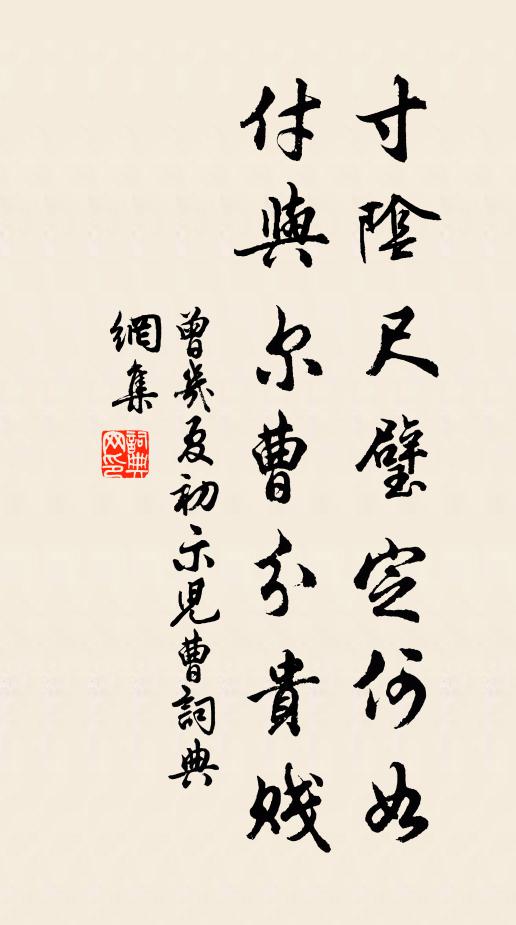 寸陰尺璧定何如
付與尔曹分貴賤
曾幾夏初示児曹詞典
網集
詞典網印